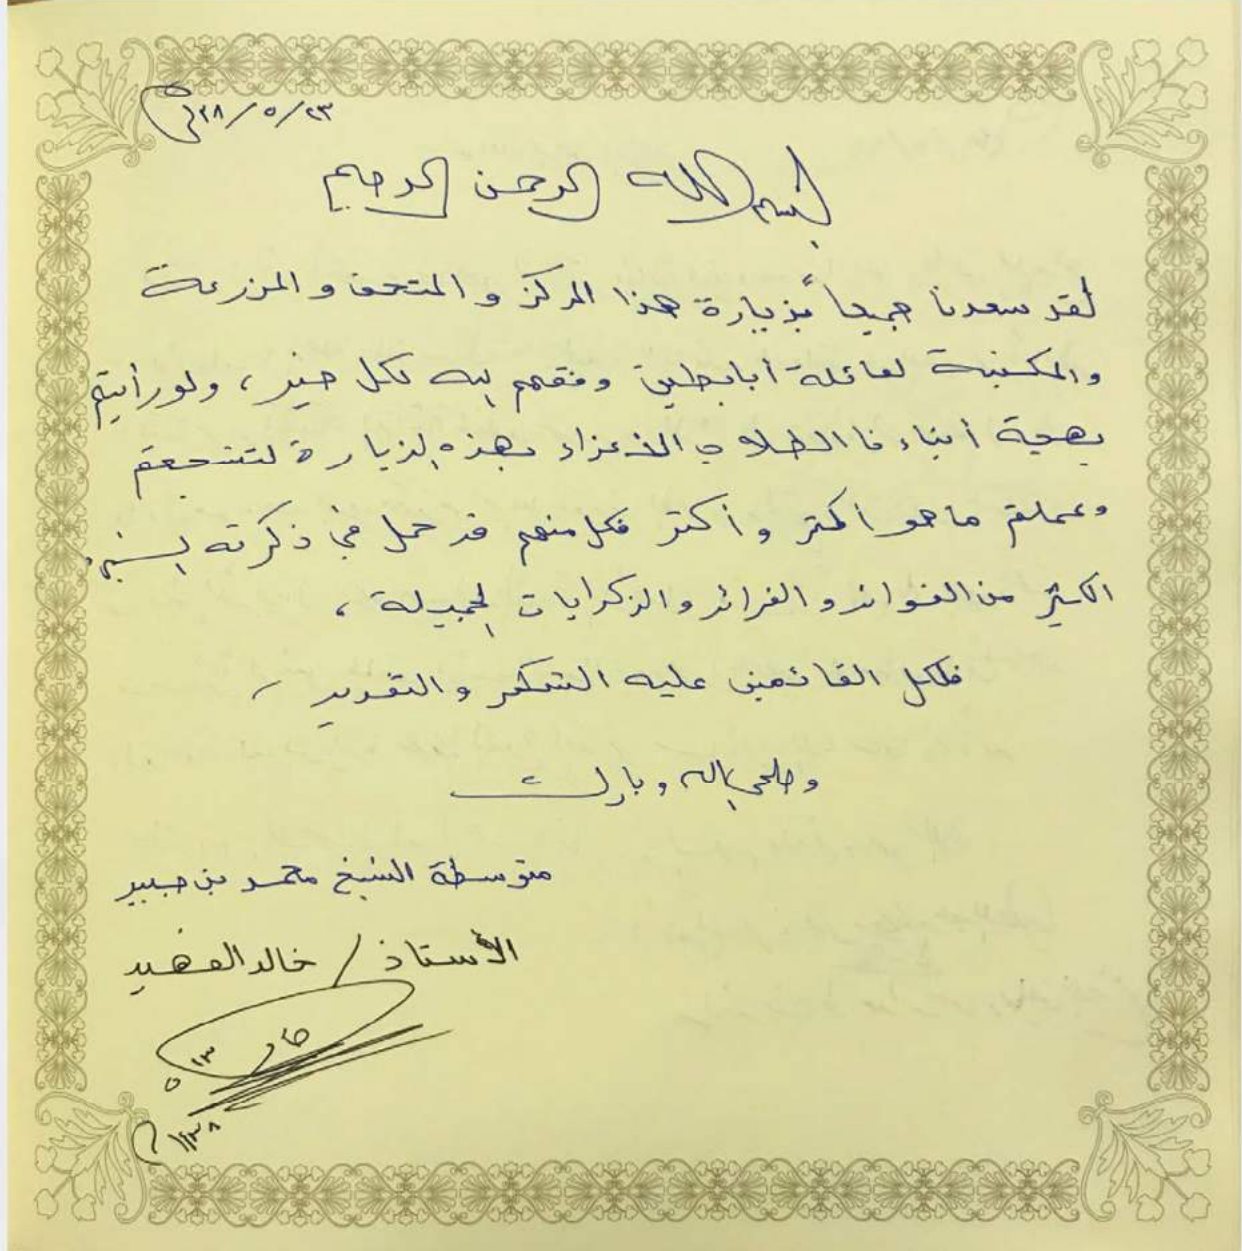 ٢٣/٥/٣٨هـ
بسم الله الرحمن الرحيم
لقد سعدنا جميعاً بزيارة هذا المركز و المتحف و المزرعة
والمكتبة لعائلة أبابطين وفقهم الله لكل خير ، ولو رأيتم
بهجة أبناءنا الطلاب الأعزاء بهذه الزيارة لشجعتم
وعملتم ما هو أكثر و أكثر فكل منهم قد حمل في ذكرته
الكثير من الفوائد و الفرائد و الذكرايات الجميلة ،
فلكل القائمين عليه الشكر و التقدير ،
وصلى الله وبارك
متوسطة الشيخ محمد بن جبير
الأستاذ / خالد الفهيد